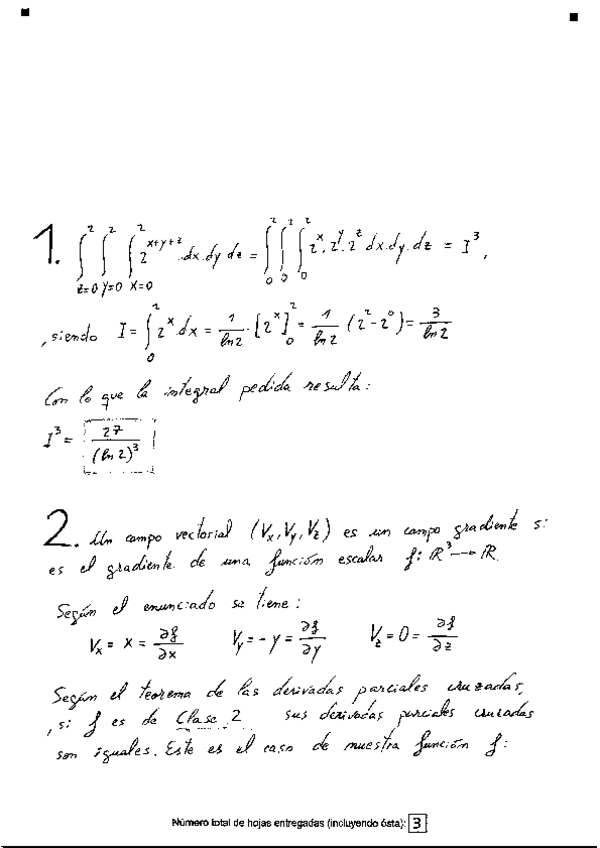 1. ∫_{z=0}^{2} ∫_{y=0}^{2} ∫_{x=0}^{2} 2^{x+y+z} .dx.dy dz = ∫_0^2 ∫_0^2 ∫_0^2 2^x. 2^y. 2^z dx.dy.dz = I^3,
, siendo I = ∫_0^2 2^x dx = 1/ln2 · [2^x]_0^2 = 1/ln2 (2^2 - 2^0) = 3/ln2
Con lo que la integral pedida resulta:
I^3 = 27/(ln 2)^3
2. Un campo vectorial (Vx, Vy, Vz) es un campo gradiente si
es el gradiente de una función escalar f: ℝ^3 → ℝ.
Según el enunciado se tiene:
Vx = x = ∂f/∂x Vy = - y = ∂f/∂y Vz = 0 = ∂f/∂z
Según el teorema de las derivadas parciales cruzadas,
, si f es de Clase 2 sus derivadas parciales cruzadas
son iguales. Este es el caso de nuestra función f:
Número total de hojas entregadas (incluyendo ésta): 3